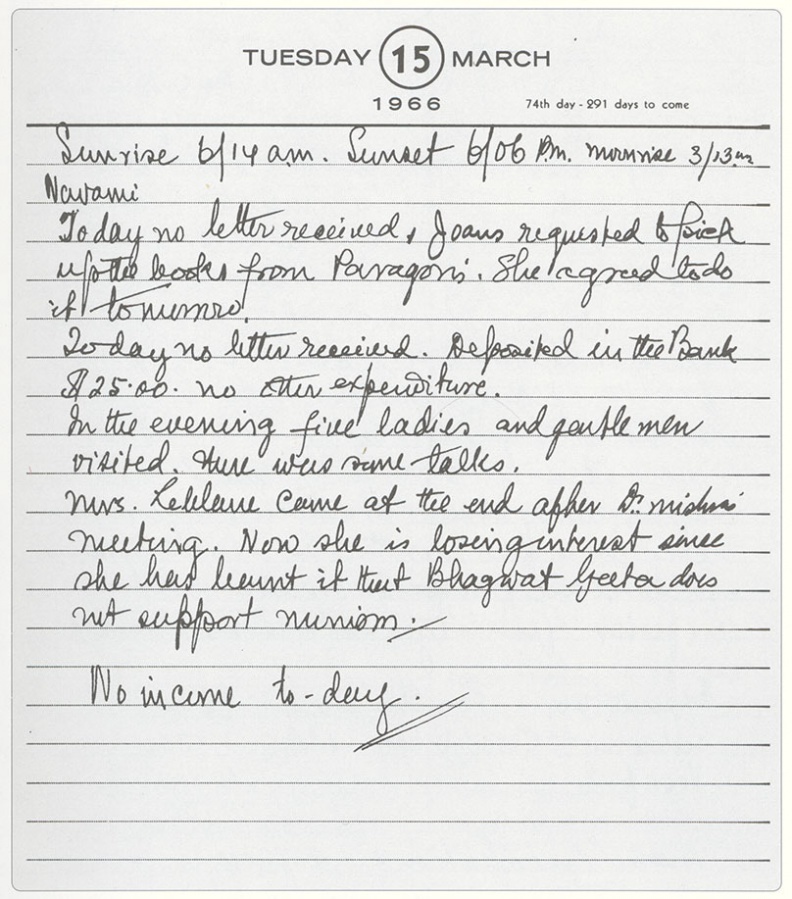 TUESDAY 15 MARCH
1966
74th day - 291 days to come
Sunrise 6/14 am. Sunset 6/06 P.m. moonrise 3/13 am
Navami
Today no letter received, Joans requested to pick
up the books from Paragons. She agreed to do
it tomorrow.
Today no letter received. Deposited in the Bank
$25.00. no other expenditure.
In the evening five ladies and gentlemen
visited. There were some talks.
Mrs. came at the end after Dr. Misras
meeting. Now she is losing interest since
she has learnt it that Bhagwat Geeta does
not support monism.
No income to-day.